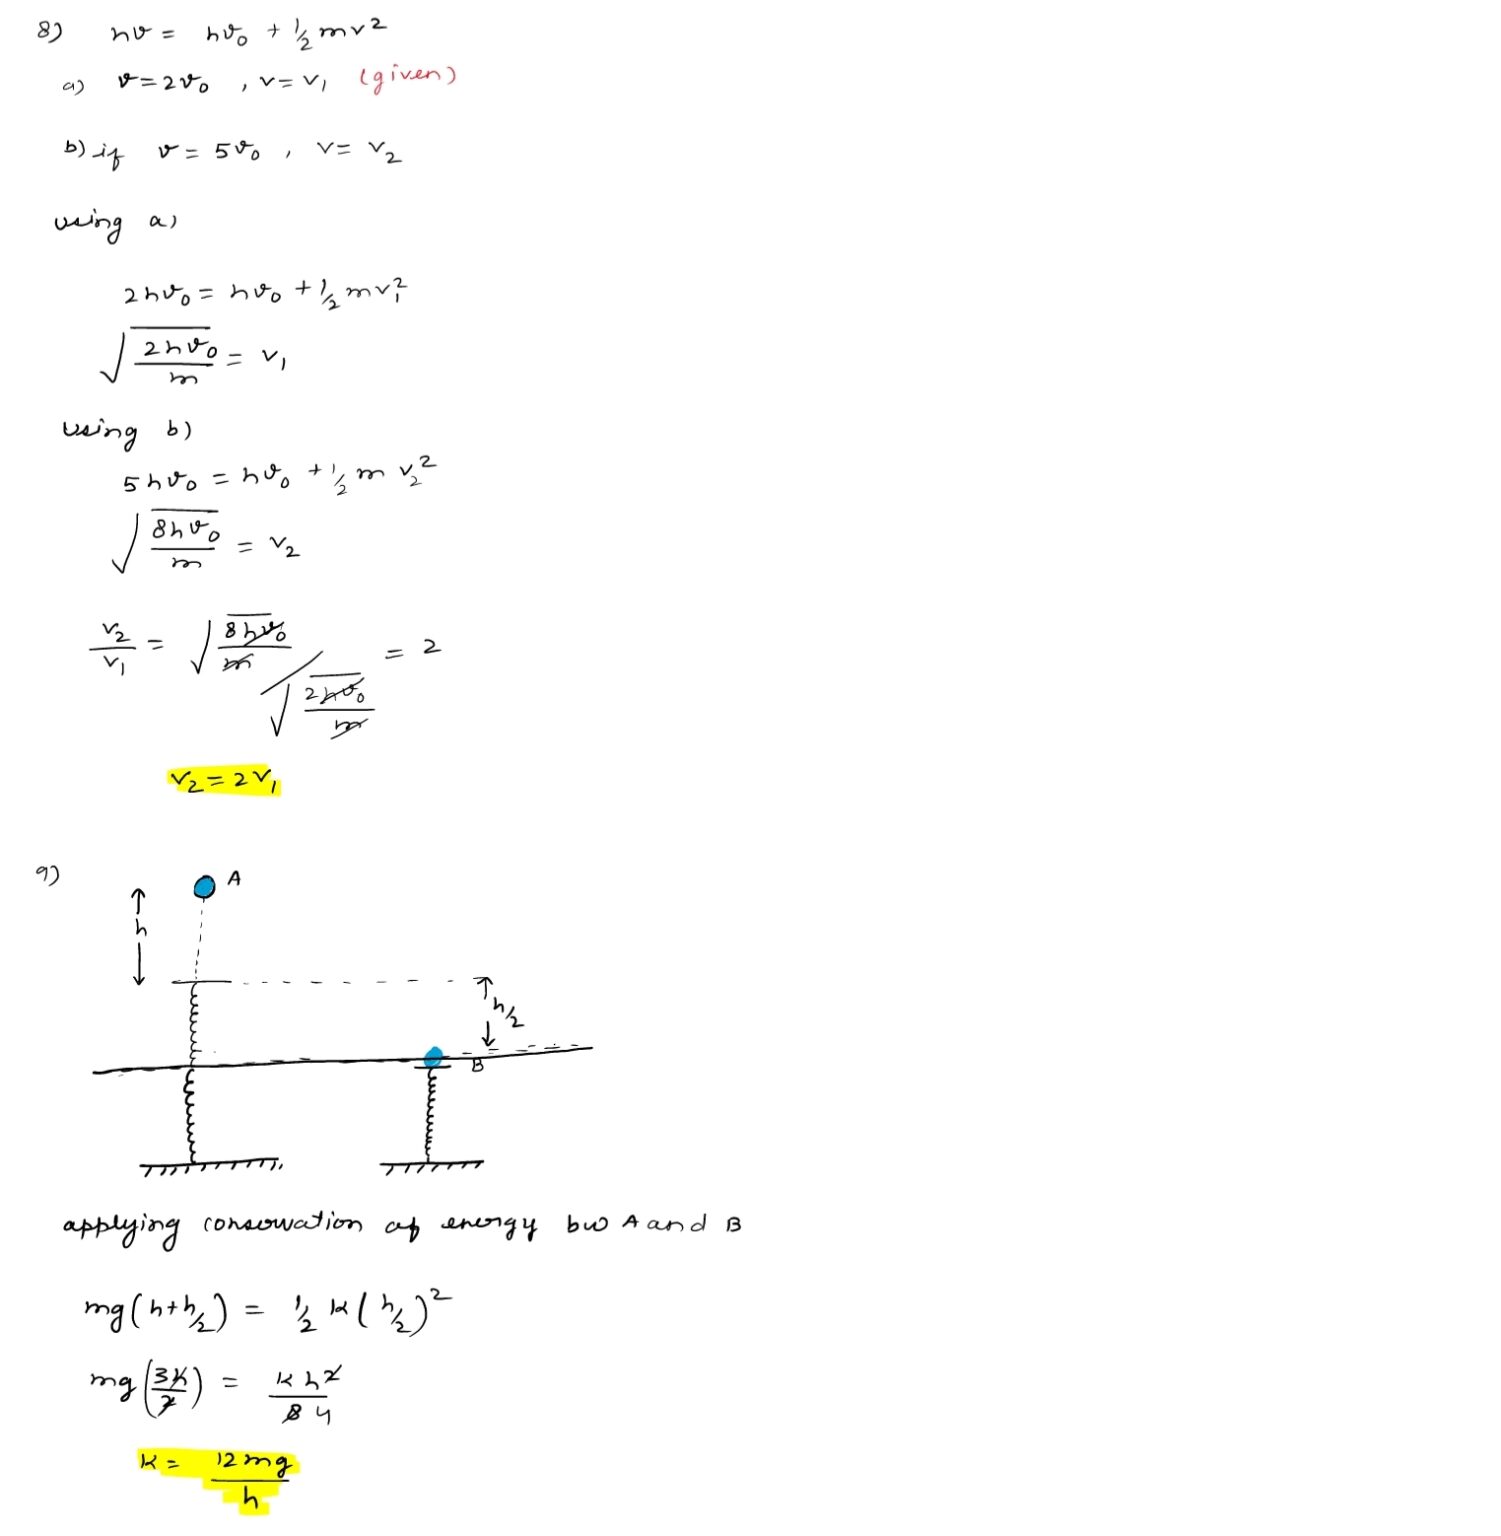 8) hν = hν₀ + ½ mv²
a) ν = 2ν₀ , v = v₁ (given)
b) if ν = 5ν₀ , v = v₂
using a)
2hν₀ = hν₀ + ½ mv₁²
√(2hν₀/m) = v₁
using b)
5hν₀ = hν₀ + ½ m v₂²
√(8hν₀/m) = v₂
v₂/v₁ = √(8hν₀/m) / √(2hν₀/m) = 2
v₂ = 2v₁
9)
A
h
h/2
B
applying conservation of energy bw A and B
mg(h+h/2) = ½ k(h/2)²
mg(3h/2) = kh²/8 4
k = 12mg/h